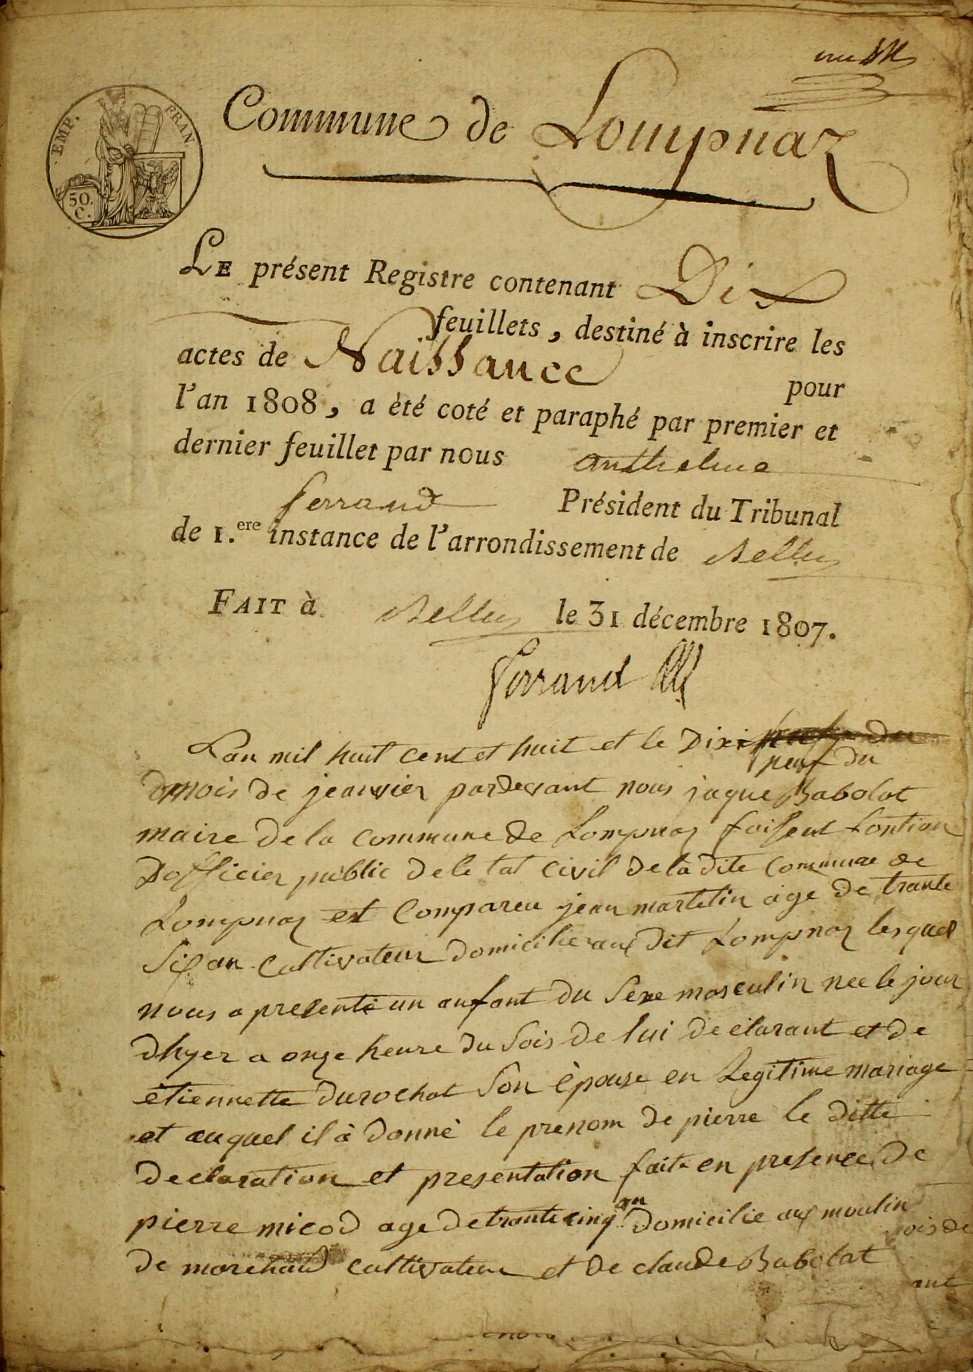 EMP. FRAN
50. C.
Commune de Lompnaz
LE présent Registre contenant Dix
feuillets, destiné à inscrire les
actes de Naissance pour
l'an 1808, a été coté et paraphé par premier et
dernier feuillet par nous anthelme
ferrand Président du Tribunal
de 1.ere instance de l'arrondissement de Belley
FAIT à Belley le 31 décembre 1807.
ferrand
Lan mil huit cent et huit et le Dixe
neuf du
mois de jeanvier pardevant nous jaque Babolat
maire de la commune de Lompnaz faisent fontion
Dofficier public de le tat civil de la dite Commune de
Lompnaz est Compareu jean martelin age de trante
Six an cultivateur domicilie aux dit Lompnaz lesquel
nous a presenté un anfant du Sexe masculin nee le jour
dhyer a onze heure du Sois de lui declarant et de
étiennette durochat Son épouse en Legitime mariage
et auquel il à donné le prenom de pierre le ditte
declaration et presentation faite en presence de
pierre micod age de trante cinq an Domicilie aux moulin
de morchand cultivateur et de claude Babolat